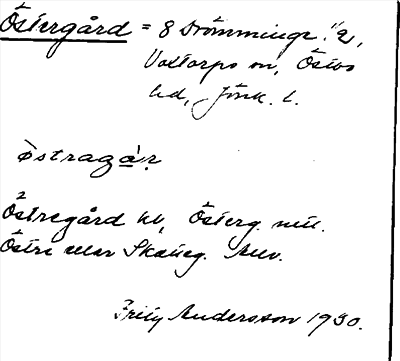 Östergård = 8 Drömminge 1/2,
Voxtorps sn, Östbo
hd, Jönk. l.
östragà̱r
Östregård kl, Österg. mtl.
Östre eller Skatteg. Auv.
Frity Andersson 1930.